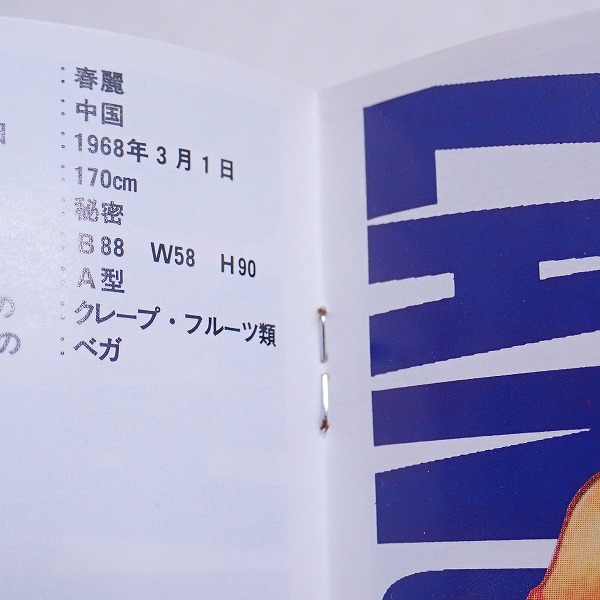 ：春麗
：中国
：1968年3月1日
：170cm
：秘密
：B88　W58　H90
：A型
の：クレープ・フルーツ類
の：ベガ